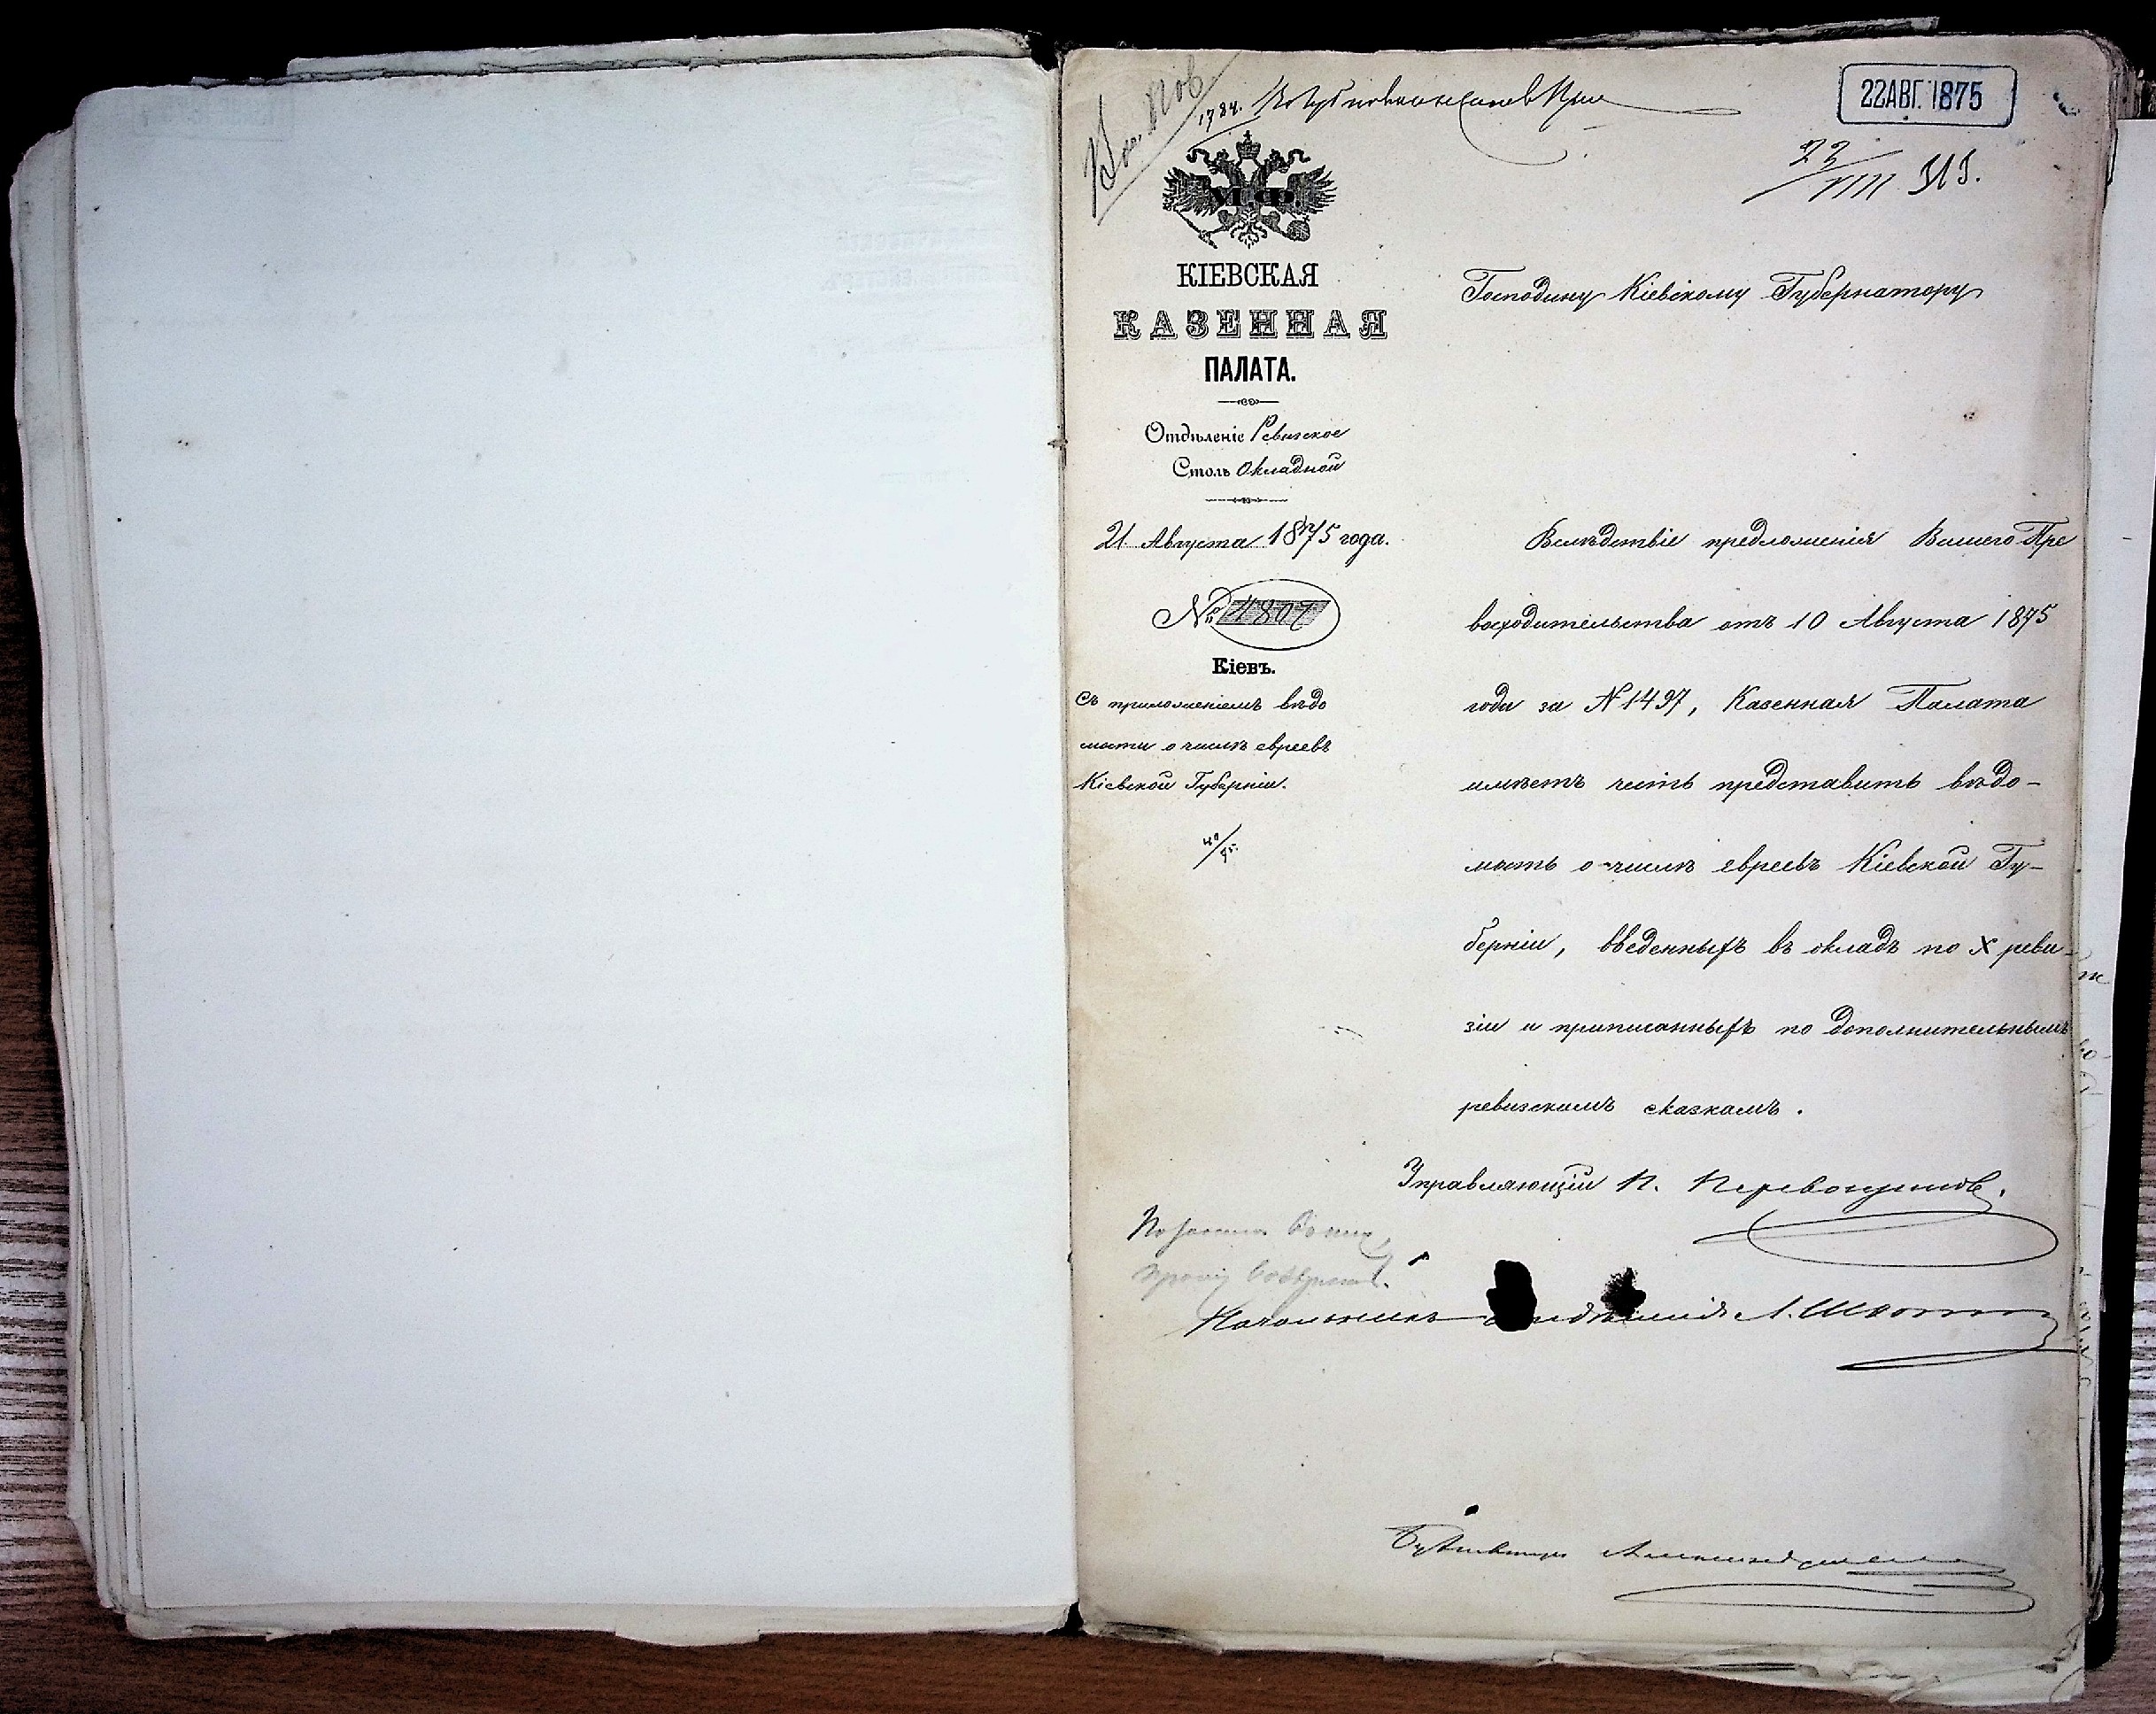 22 АВГ. 1875
1784.
23/VIII
М.Ф.
КІЕВСКАЯ
КАЗЕННАЯ
ПАЛАТА.
Отдѣленіе Ревизское
Столъ Окладной
21 Августа 1875 года.
№ 4807
Кіевъ.
Съ приложеніемъ вѣдо
мости о числѣ евреевъ
Кіевской Губерніи.
Господину Кіевскому Губернатору
Вслѣдствіе предложенія Вашего Пре
восходительства отъ 10 Августа 1875
года за N 1497, Казенная Палата
имѣетъ честь представить вѣдо-
мость о числѣ евреевъ Кіевской Гу-
берніи, введенныхъ въ окладъ по X реви-
зіи и приписанныхъ по дополнительнымъ
ревизскимъ сказкамъ.
Управляющій
Начальникъ Отдѣленія
Бухгалтеръ